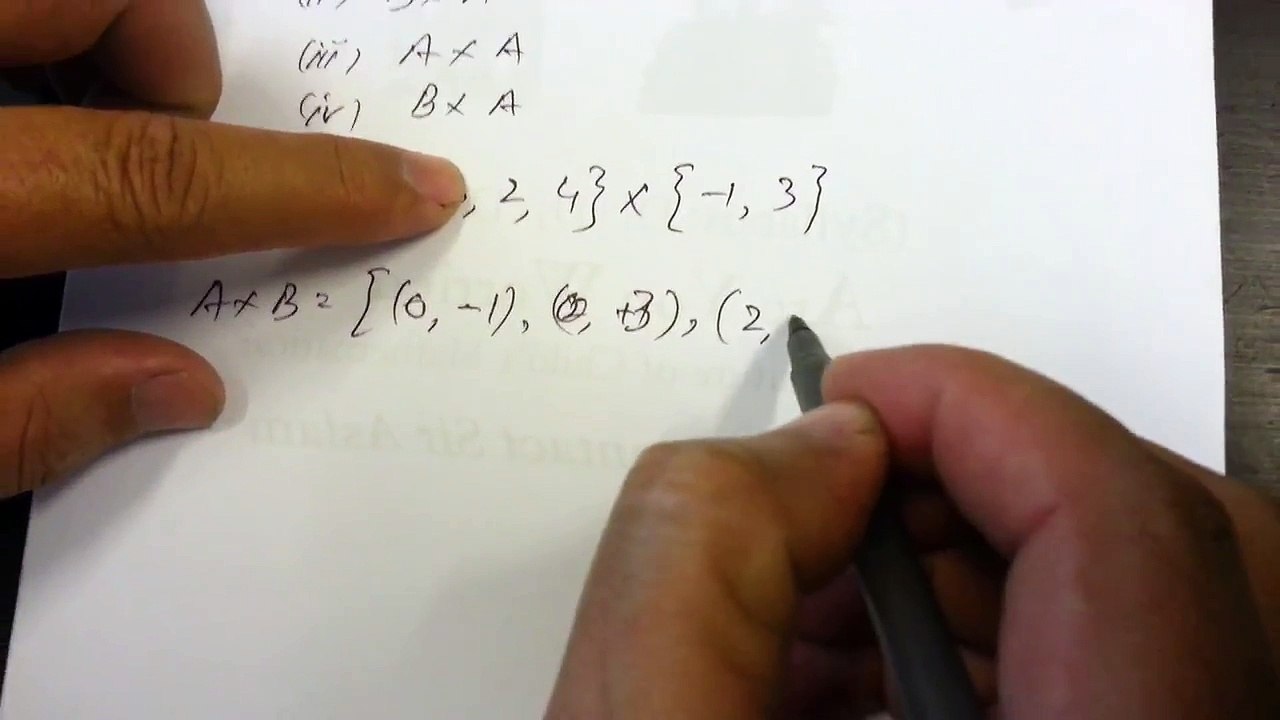 (iii) A × A
(iv) B × A
, 2, 4} × {-1, 3}
A × B = {(0, -1), (0, 3), (2,